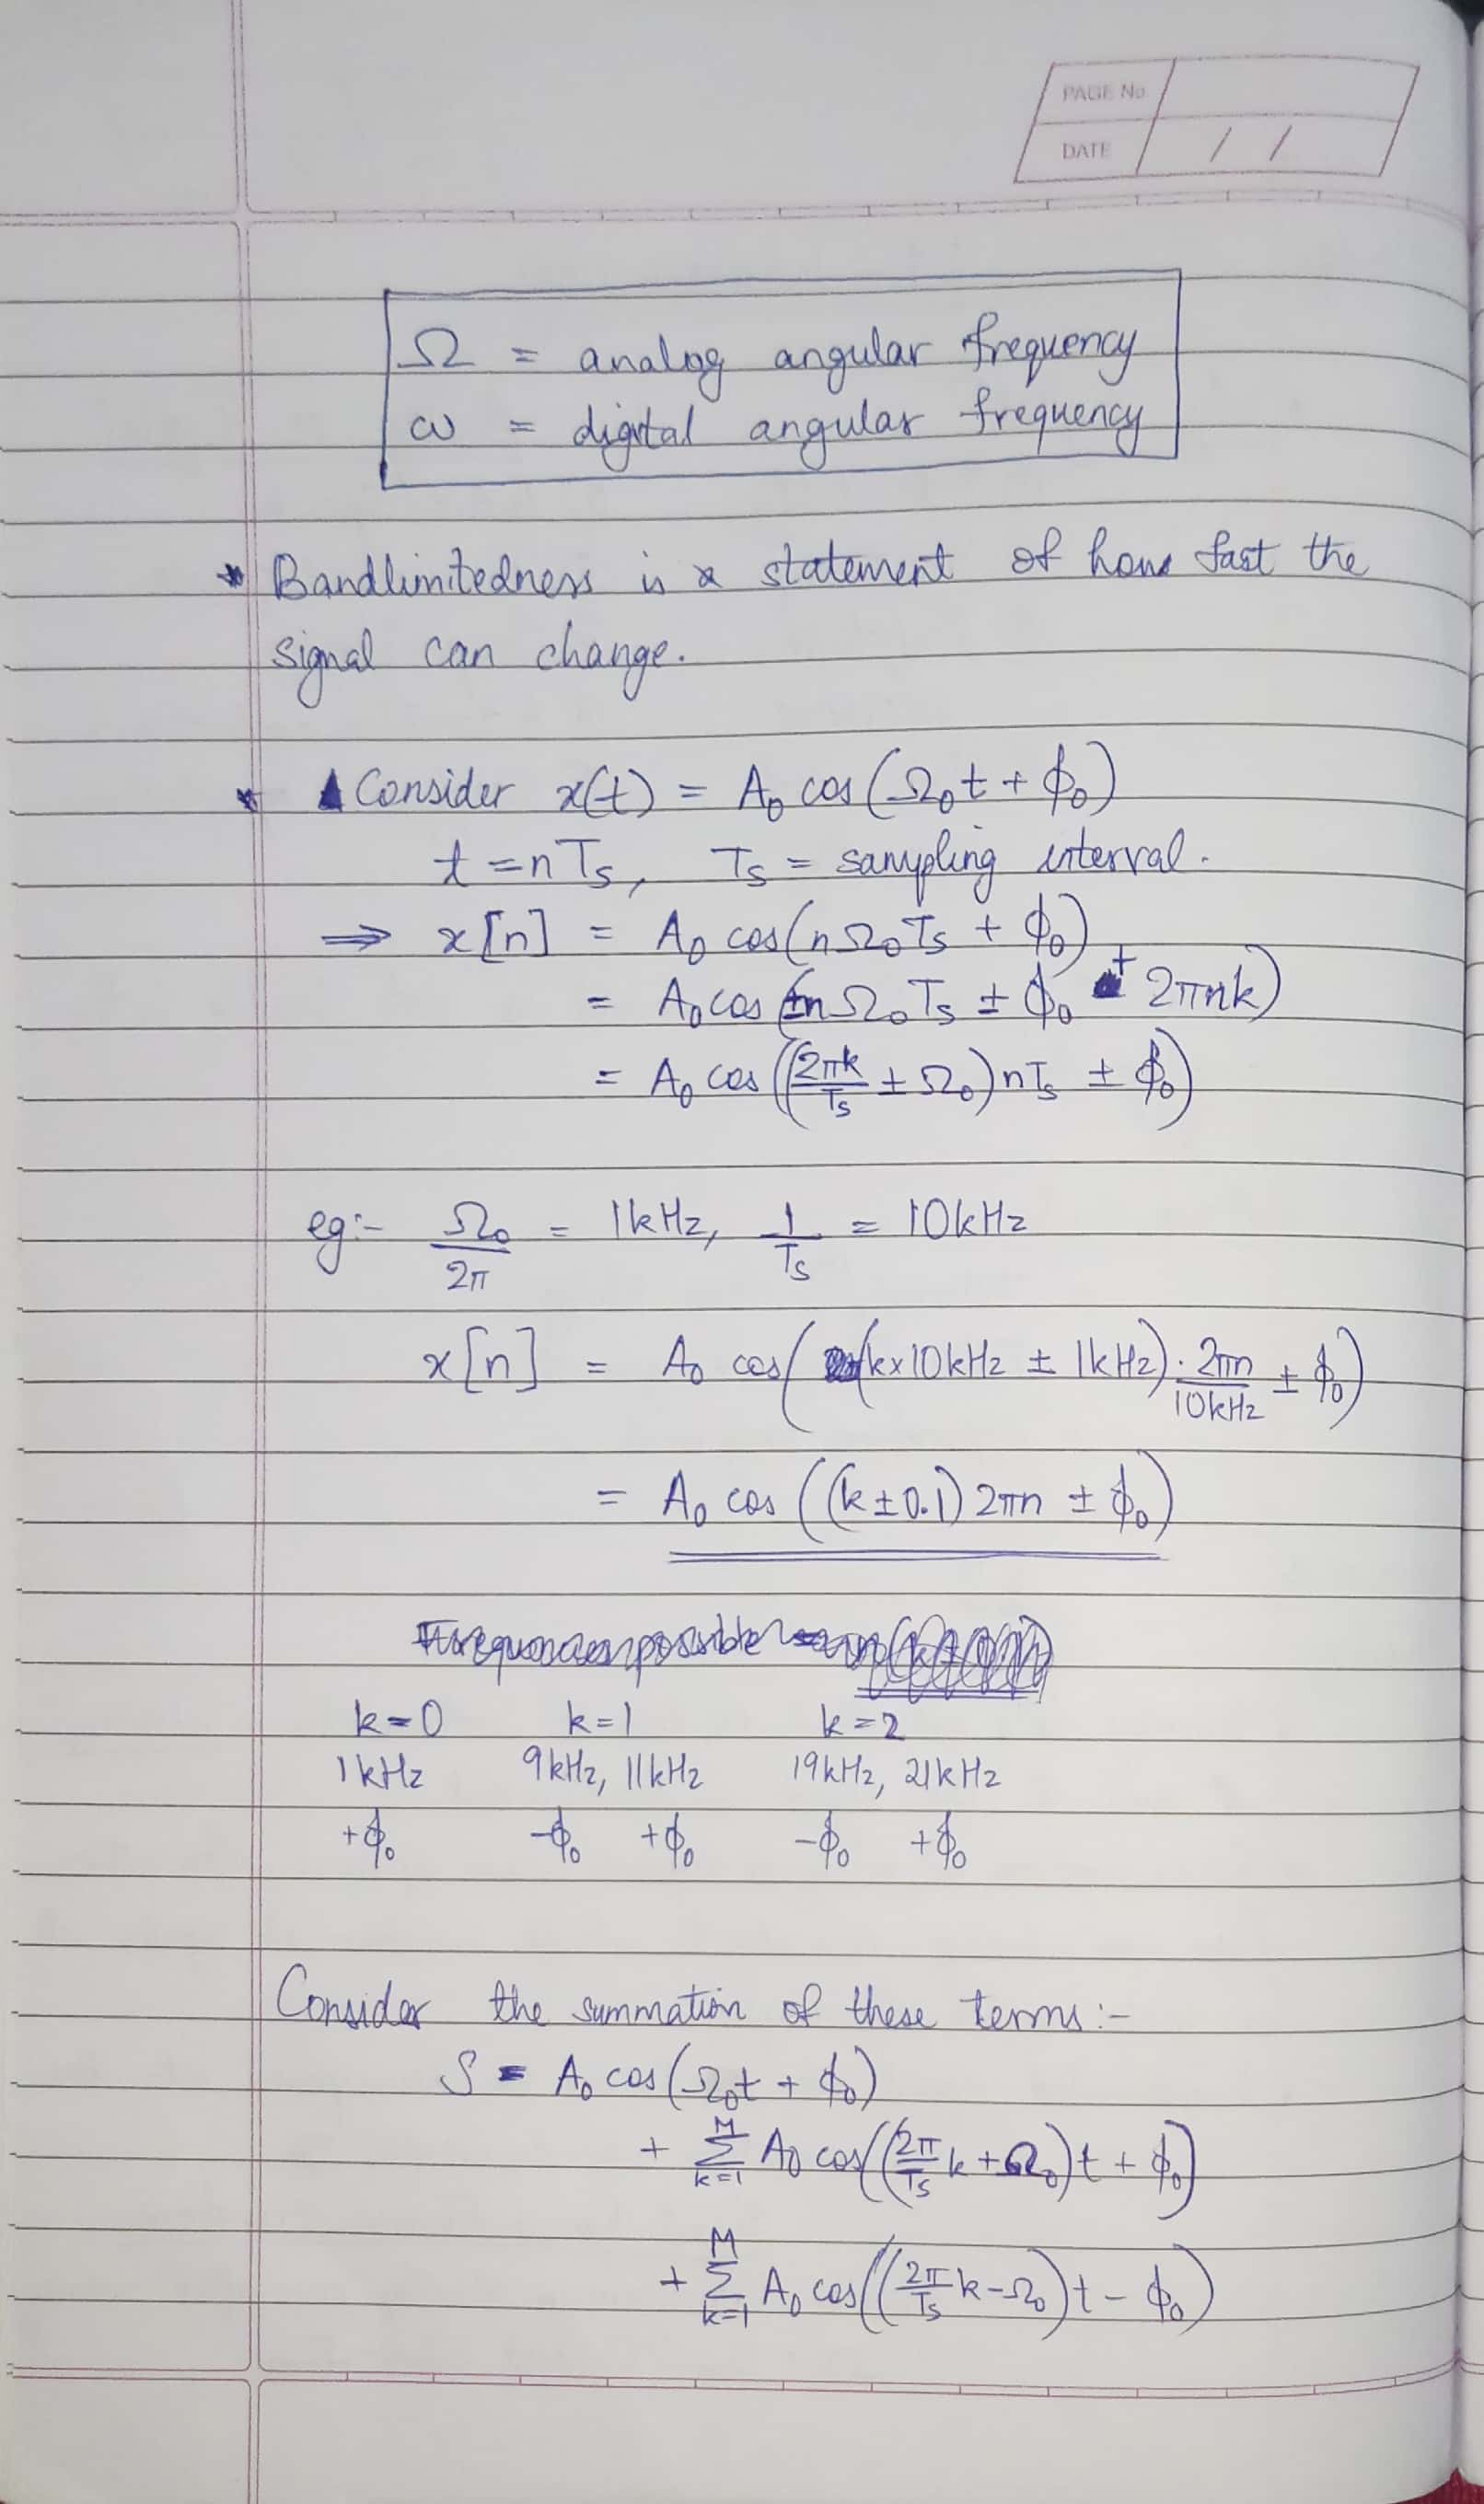 PAGE No
DATE / /
Ω = analog angular frequency
ω = digital angular frequency
* Bandlimitedness is a statement of how fast the
signal can change.
* Consider x(t) = A₀ cos(Ω₀t + ϕ₀)
t = nTs, Ts = sampling interval.
⇒ x[n] = A₀ cos(nΩ₀Ts + ϕ₀)
= A₀ cos(±nΩ₀Ts ± ϕ₀ + 2πnk)
= A₀ cos((2πk/Ts ± Ω₀)nTs ± ϕ₀)
eg:- Ω₀/2π = 1kHz, 1/Ts = 10kHz
x[n] = A₀ cos((k×10kHz ± 1kHz)·2πn/10kHz ± ϕ₀)
= A₀ cos((k±0.1)2πn ± ϕ₀)
k=0 k=1 k=2
1kHz 9kHz, 11kHz 19kHz, 21kHz
+ϕ₀ -ϕ₀ +ϕ₀ -ϕ₀ +ϕ₀
Consider the summation of these terms:-
S = A₀ cos(Ω₀t + ϕ₀)
+ M Σ k=1 A₀ cos((2π/Ts k + Ω₀)t + ϕ₀)
+ M Σ k=1 A₀ cos((2π/Ts k - Ω₀)t - ϕ₀)